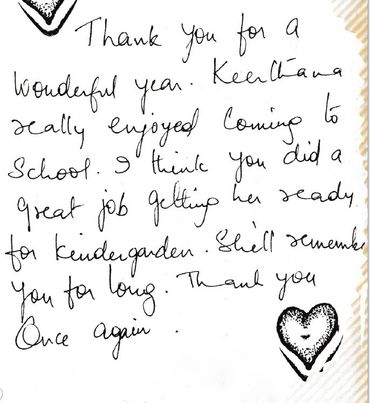 Thank you for a
wonderful year. Keerthana
really enjoyed coming to
School. I think you did a
great job getting her ready
for kindergarden. She'll remember
you for long. Thank you
Once again.